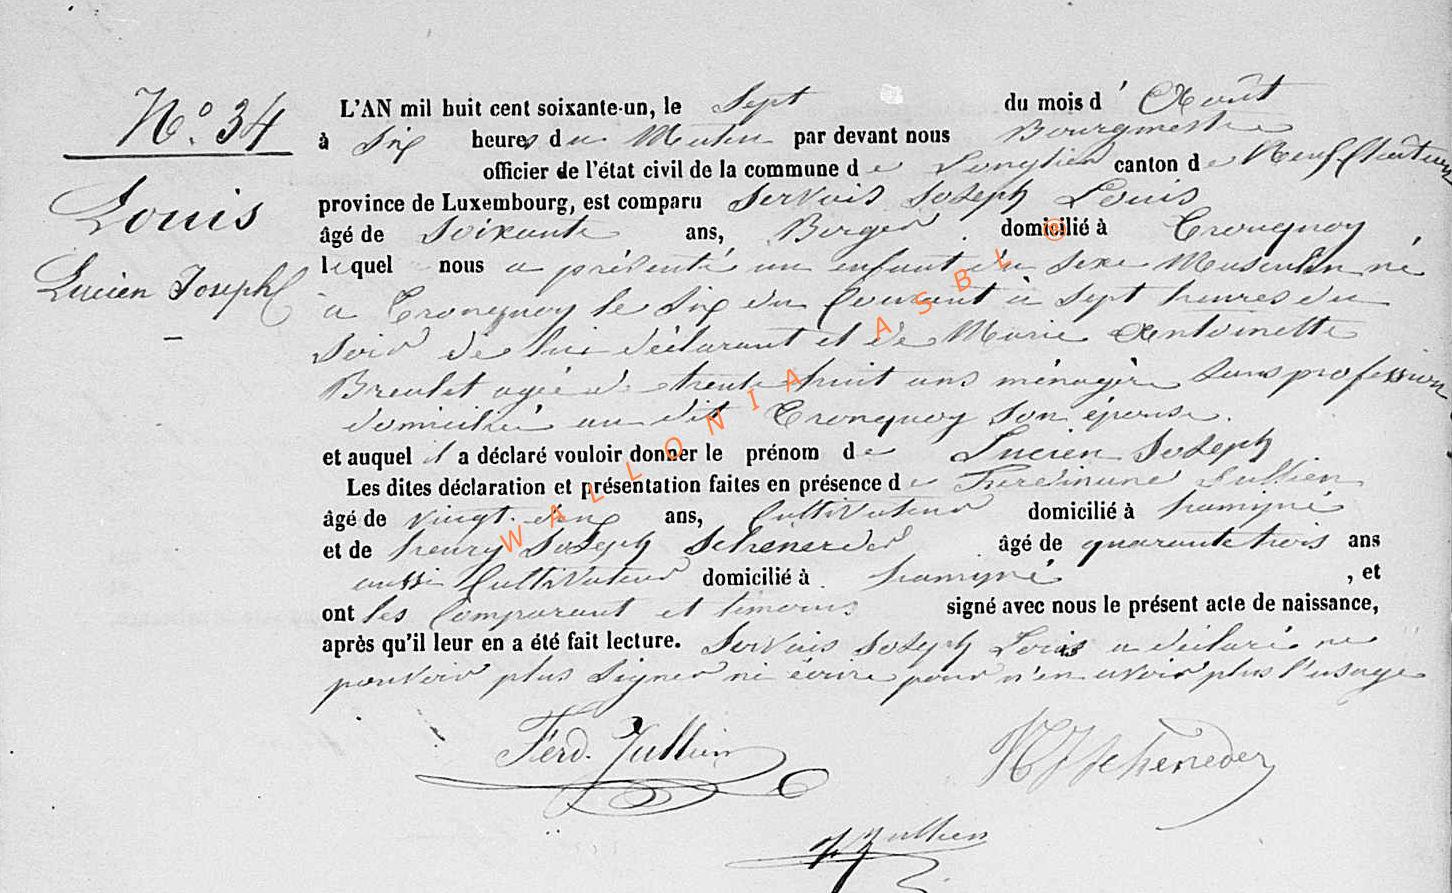 N° 34
Louis
Lucien Joseph
L'AN mil huit cent soixante-un, le Sept du mois d' Août
à Six heures du Matin par devant nous Bourgmestre
officier de l'état civil de la commune de Longlier canton de Neufchateau
province de Luxembourg, est comparu Servais Joseph Louis
âgé de Soixante ans, Berger domicilié à Tronquoy
lequel nous a présenté un enfant du Sexe Masculin né
à Tronquoy le Six du Courant à Sept heures du
Soir de lui déclarant et de Marie Antoinette
agée de trente huit ans ménagère Sans profession
domiciliée au dit Tronquoy Son épouse.
et auquel il a déclaré vouloir donner le prénom de Lucien Joseph
Les dites déclaration et présentation faites en présence de Ferdinand Jullien
âgé de vingt-deux ans, Cultivateur domicilié à hamipré
et de henry Joseph Scheneder âgé de quarante trois ans
aussi Cultivateur domicilié à hamipré , et
ont les Comparant et témoins signé avec nous le présent acte de naissance,
après qu'il leur en a été fait lecture. Servais Joseph Louis a déclaré ne
pouvoir plus Signer ni écrire pour n'en avoir plus l'usage
Ferd. Jullien
HJScheneder
Jullien
WALLONIA ASBL ©